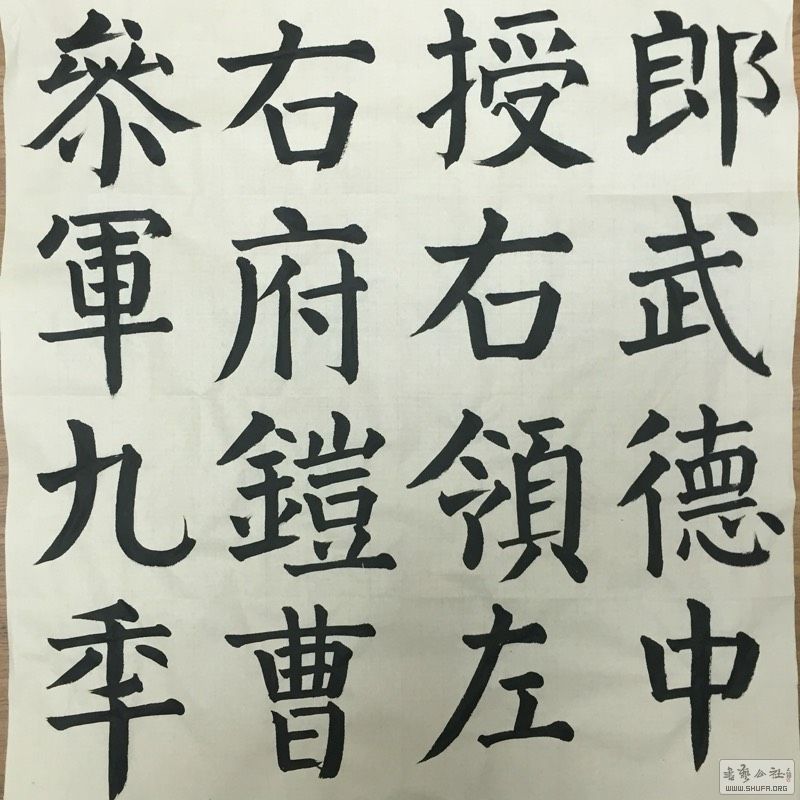 郎武德中
授右領左
右府鎧曹
叅軍九年
书艺公社
WWW.SHUFA.ORG